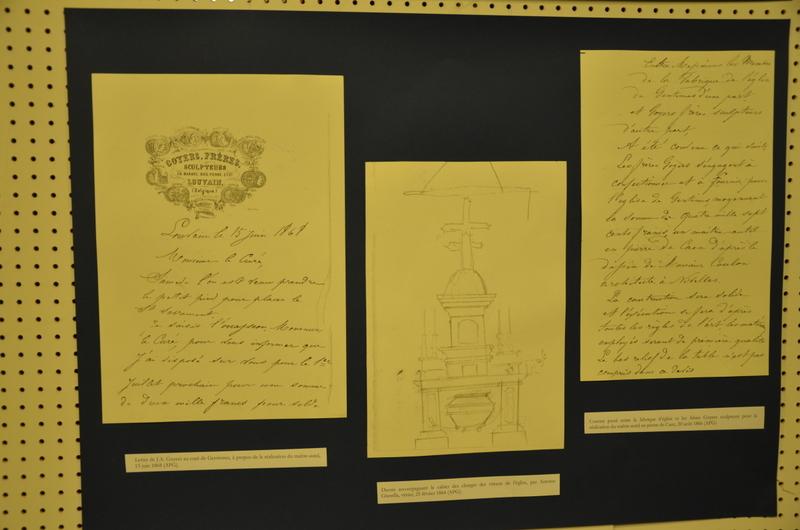 GOYERS, FRÈRES,
SCULPTEURS
LOUVAIN,
(Belgique)
Louvain le 15 juin 1868
Monsieur le Curé,
Samedi l'on est venu prendre
le petit pied pour placer le
St Sacrement.
Je saisis l'occasion Monsieur
le Curé pour vous informer que
j'ai disposé sur vous pour le 1er
Juillet prochain pour une somme
de deux mille francs pour solde
Lettre de J.A. Goyers au curé de Gentinnes, à propos de la réalisation du maître-autel,
15 juin 1868 (APG)
Dessin accompagnant le cahier des charges des vitraux de l'église, par
verrier, 25 février 1864 (APG)
Entre Messieurs les Membres
de la Fabrique de l'église
de Gentinnes d'une part
et Goyers frères sculpteurs
d'autre part
A été convenu ce qui suit:
Les frères Goyers s'engagent à
confectionner et à fournir pour
l'église de Gentinnes moyennant
la somme de quatre mille sept
cents francs, un maître-autel
en pierre de Caen d'après le
dessin de Monsieur Coulon
architecte à Nivelles.
La construction sera solide
et l'exécution se fera d'après
toutes les règles de l'art, les matières
employés seront de première qualité
Le bas relief de la table n'est pas
compris dans ce devis
Contrat passé entre la fabrique d'église et les frères Goyers sculpteurs pour la
réalisation du maître-autel en pierre de Caen, 20 août 1866 (APG)